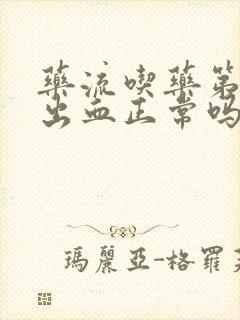 藥流喫藥第
出血正常嗎
瑪麗亞-格羅